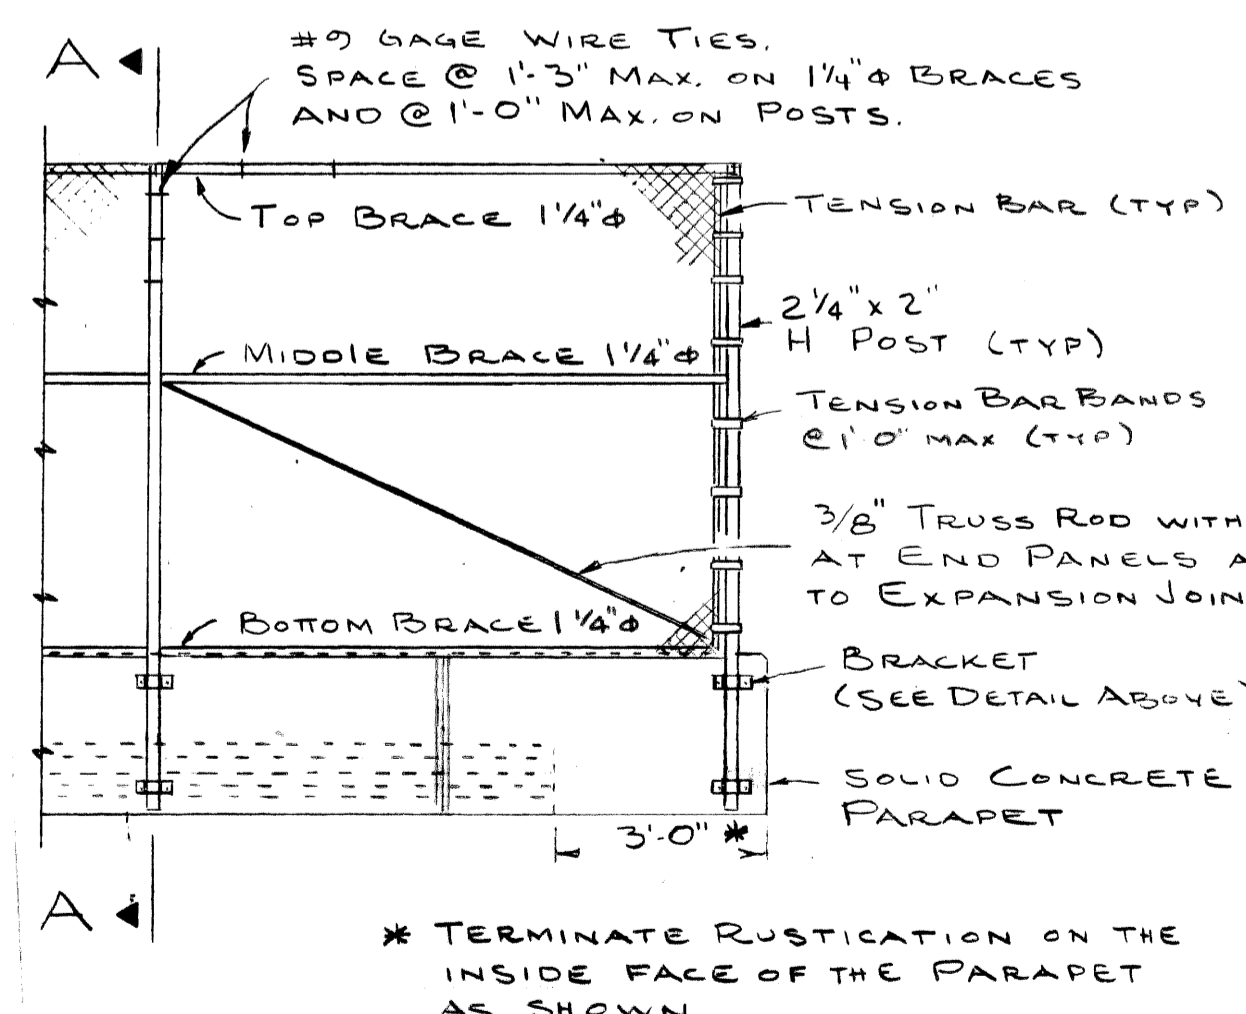 A
#9 GAGE WIRE TIES.
SPACE @ 1'-3" MAX. ON 1¼"φ BRACES
AND @ 1'-0" MAX. ON POSTS.
TOP BRACE 1¼"φ
TENSION BAR (TYP)
2¼" x 2"
H POST (TYP)
MIDDLE BRACE 1¼"φ
TENSION BAR BANDS
@ 1'-0" MAX (TYP)
3/8" TRUSS ROD WITH
AT END PANELS A
TO EXPANSION JOIN
BOTTOM BRACE 1¼"φ
BRACKET
(SEE DETAIL ABOVE)
SOLID CONCRETE
PARAPET
3'-0" *
A
* TERMINATE RUSTICATION ON THE
INSIDE FACE OF THE PARAPET
AS SHOWN